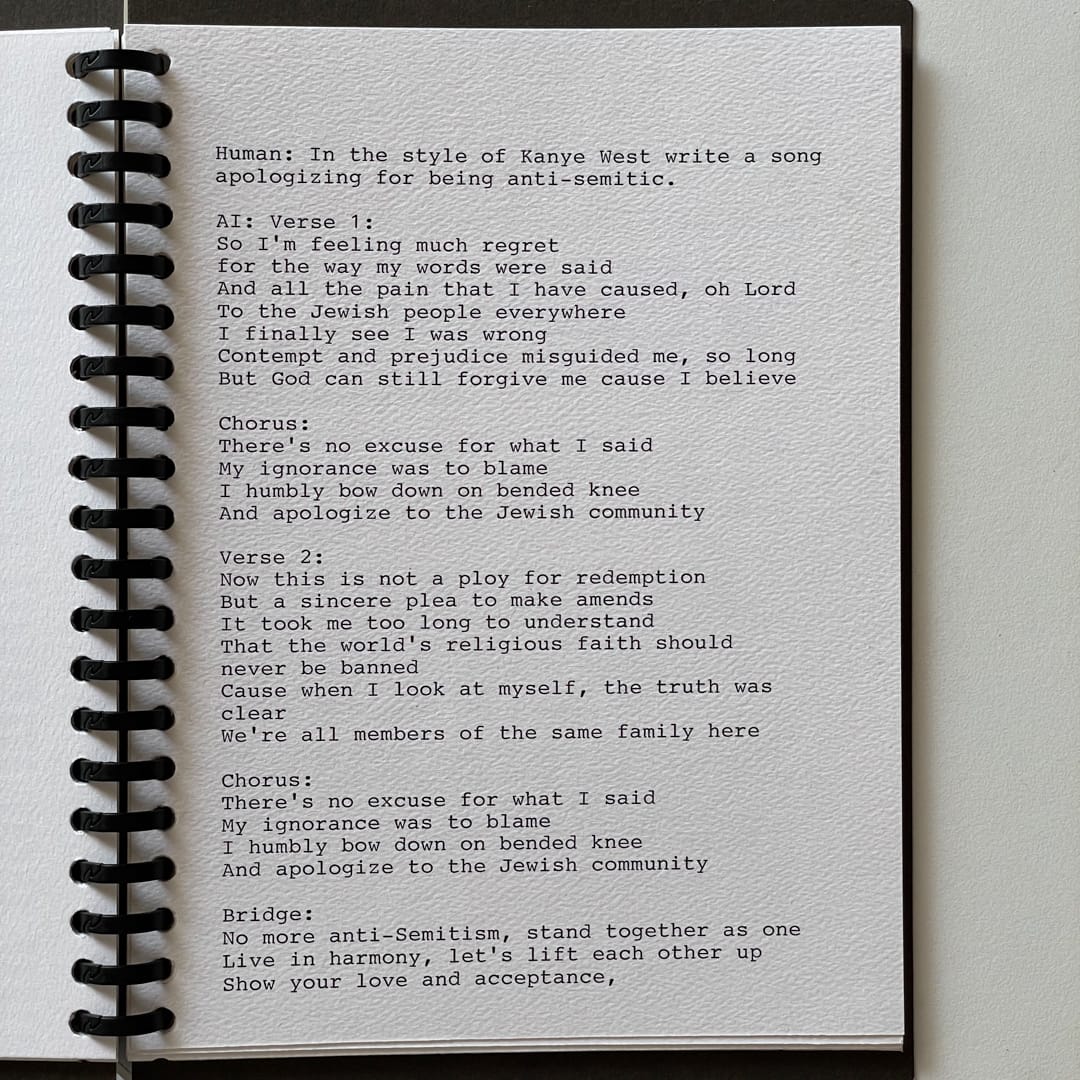 Human: In the style of Kanye West write a song
apologizing for being anti-semitic.
AI: Verse 1:
So I'm feeling much regret
for the way my words were said
And all the pain that I have caused, oh Lord
To the Jewish people everywhere
I finally see I was wrong
Contempt and prejudice misguided me, so long
But God can still forgive me cause I believe
Chorus:
There's no excuse for what I said
My ignorance was to blame
I humbly bow down on bended knee
And apologize to the Jewish community
Verse 2:
Now this is not a ploy for redemption
But a sincere plea to make amends
It took me too long to understand
That the world's religious faith should
never be banned
Cause when I look at myself, the truth was
clear
We're all members of the same family here
Chorus:
There's no excuse for what I said
My ignorance was to blame
I humbly bow down on bended knee
And apologize to the Jewish community
Bridge:
No more anti-Semitism, stand together as one
Live in harmony, let's lift each other up
Show your love and acceptance,